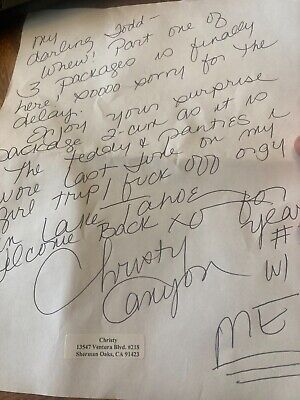 My
darling Todd -
Whew! Part one of
3 packages is finally
here! Soooo sorry for the
delay.
Enjoy your surprise
package 2-cum as it is
The teddy & panties I
wore last June on my
girl trip / fuck off orgy
in Lake Tahoe
Welcome Back xo for
year
#
w/
ME
Christy
Canyon
Christy
13547 Ventura Blvd. #218
Sherman Oaks, CA 91423